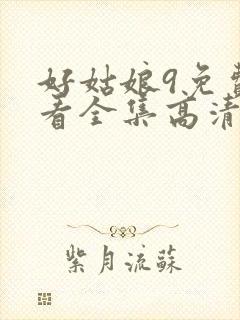 好姑娘9免费
看全集高清
紫月流蘇